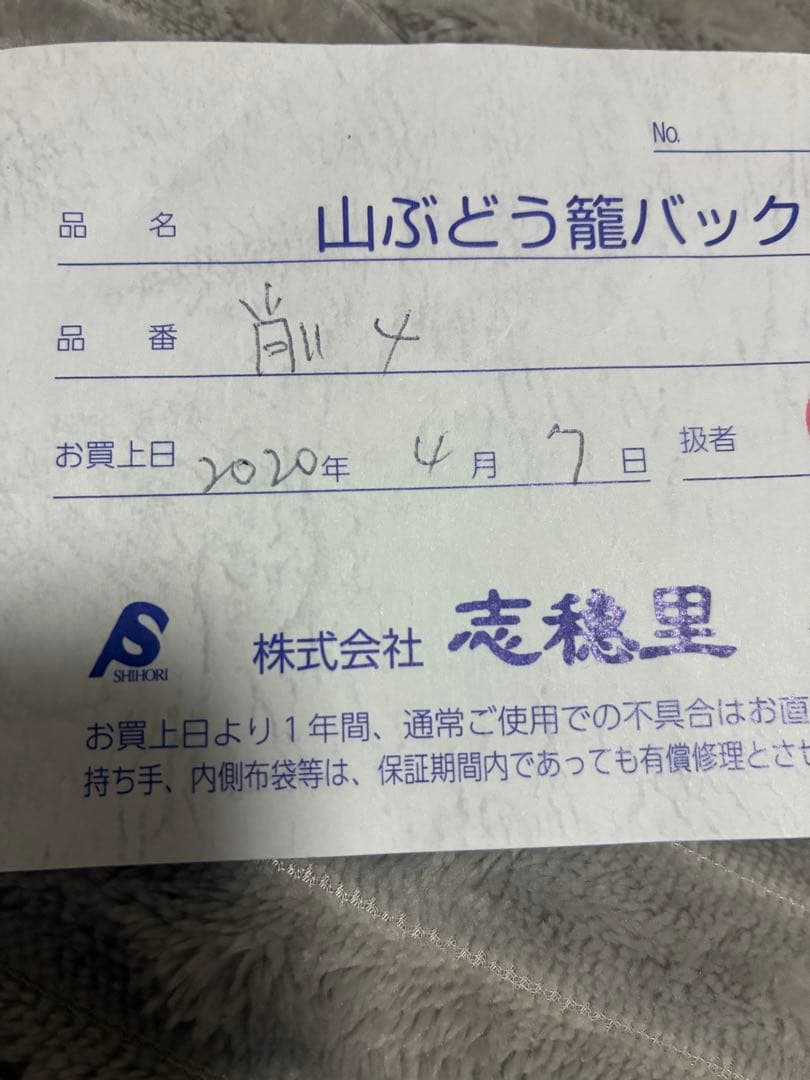 No.
品名 山ぶどう籠バック
品番 削 4
お買上日 2020年 4月 7日 扱者
SHIHORI 株式会社 志穂里
お買上日より1年間、通常ご使用での不具合はお直
持ち手、内側布袋等は、保証期間内であっても有償修理とさせ